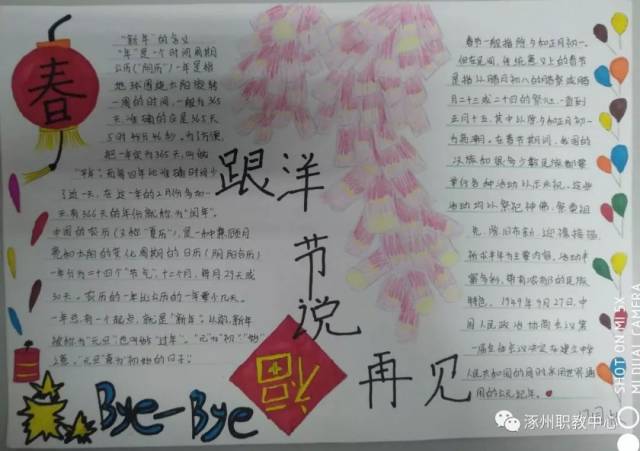 春
"新年"的含义
"年"是一个时间周期
公历("阳历")一年是指
地球围绕太阳旋转
一周的时间，一般为365
天，准确的应是365天
5时48分46秒。为了方便
把一年定为365天，叫做
天，有366天的年份就称为"闰年"。
中国的农历(又称"夏历")，是一种兼顾月
亮和太阳的变化周期的日历(阴阳合历)
一年分为二十四个"节气"，十二个月，每月29天或
30天。农历的一年比公历的一年要少几天。
一年总有一个起点，就是"新年"。从前，新年
被称为"元旦"也叫做"过年"。"元"为"初""始"
之意。"元旦"意为"初始的日子"。
跟洋
节
说
再见
福
Bye-Bye
春节一般指除夕和正月初一。
但在民间，传统意义上的春节
是指从腊月初八的腊祭或腊
月二十三或二十四的祭灶，一直到
正月十五，其中以除夕和正月初一
为高潮。在春节期间，我国的
汉族和很多少数民族都要
举行各种活动以示庆祝。这些
活动均以祭祀神佛、祭奠祖
先、除旧布新、迎禧接福、
祈求丰年为主要内容。活动丰
富多彩，带有浓郁的民族
特色。1949年9月27日，中
国人民政治协商会议第
一届全体会议决定在建立中华
人民共和国的同时采用世界通
用的公元纪年。
涿州职教中心
SHOT ON MI 5X
MI DUAL CAMERA